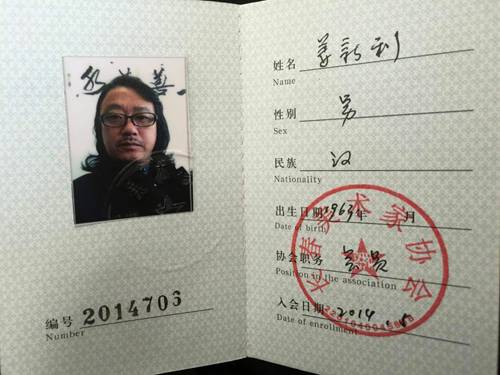 编号 2014703
Number
姓名 姜新利
Name
性别 男
Sex
民族 汉
Nationality
出生日期 1963年 月
Date of birth
协会职务 会员
Position in the association
入会日期 2014.
Date of enrollment
长春 术家协会